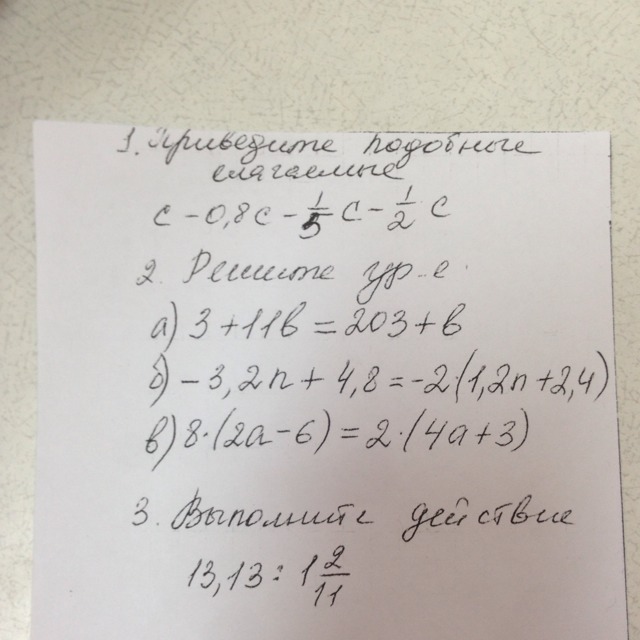 1. Приведите подобные
слагаемые
c - 0,8c - 1/5 c - 1/2 c
2. Решите ур-е.
а) 3 + 11в = 203 + в
б) - 3,2n + 4,8 = -2(1,2n + 2,4)
в) 8·(2a - 6) = 2·(4a + 3)
3. Выполните действие
13,13 : 1 2/11